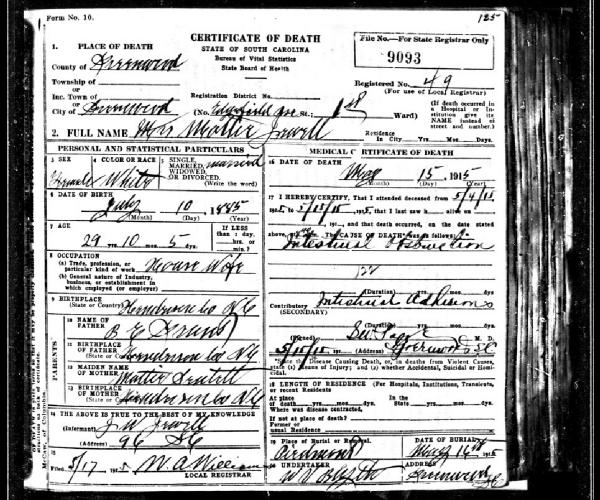 Form No. 10.
125
1. PLACE OF DEATH
County of Greenwood
Township of
or
Inc. Town of
or
City of Greenwood
CERTIFICATE OF DEATH
STATE OF SOUTH CAROLINA
Bureau of Vital Statistics
State Board of Health
Registration District No.
(No. Edgefield Ave St.; Ward)
File No.—For State Registrar Only
9093
Registered No. 49
(For use of Local Registrar)
(If death occurred in a Hospital or Institution give its NAME instead of street and number.)
2. FULL NAME Mrs Mollie Jewell
Residence In City Yrs. Mos. Days
PERSONAL AND STATISTICAL PARTICULARS
3 SEX
Female
4 COLOR OR RACE
White
5 SINGLE, MARRIED, WIDOWED, OR DIVORCED. married
(Write the word)
6 DATE OF BIRTH
July 10 1885
(Month) (Day) (Year)
7 AGE
29 yrs. 10 mos. 5 ds.
If LESS than 1 day, hrs. or min.?
8 OCCUPATION
(a) Trade, profession, or particular kind of work House Wife
(b) General nature of industry, business, or establishment in which employed (or employer)
9 BIRTHPLACE
(State or Country) Henderson Co N C
PARENTS
10 NAME OF FATHER B E
11 BIRTHPLACE OF FATHER
(State or Country) Henderson Co N C
12 MAIDEN NAME OF MOTHER Mattie
13 BIRTHPLACE OF MOTHER
(State or Country) Henderson Co N C
14 THE ABOVE IS TRUE TO THE BEST OF MY KNOWLEDGE
(Informant) J W Jewell
(Address) 96 S C
15
Filed 5/17 1915 W. A. Williams
LOCAL REGISTRAR
MEDICAL CERTIFICATE OF DEATH
16 DATE OF DEATH
May 15 1915
(Month) (Day) (Year)
17 I HEREBY CERTIFY, That I attended deceased from 5/4/15
1915, to 5/15/15 1915, that I last saw h alive on
, 191 , and that death occurred, on the date stated
above, at m. The CAUSE OF DEATH was as follows:
Intestinal Obstruction
(Duration) yrs. mos. ds.
Contributory Intestinal Adhesions
(SECONDARY)
(Duration) yrs. mos. ds.
(Signed) M. D.
5/15/15 (Address) Greenwood S C
*State the Disease Causing Death, or, in deaths from Violent Causes, state (1) Means of Injury; and (2) whether Accidental, Suicidal or Homicidal.
18 LENGTH OF RESIDENCE (For Hospitals, Institutions, Transients, or recent Residents
At place of death yrs. mos. ds. State yrs. mos. ds.
Where was disease contracted,
if not at place of death?
Former or
usual Residence
19 Place of Burial or Removal
Piedmont
DATE OF BURIAL
May 16th 1915
20 UNDERTAKER
ADDRESS
Greenwood SC